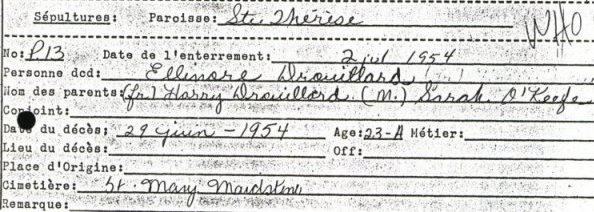 Sépultures: Paroisse: Ste. Thérèse
WHO
No: P13 Date de l'enterrement: 2 jul 1954
Personne dcd: Ellinore Drouillard
Nom des parents: (fr) Harry Drouillard (M.) Sarah O'Keefe
Conjoint:
Date du décès: 29 juin - 1954 Age: 23-A Métier:
Lieu du décès: Off:
Place d'Origine:
Cimetière: St. Mary Maidstone
Remarque: